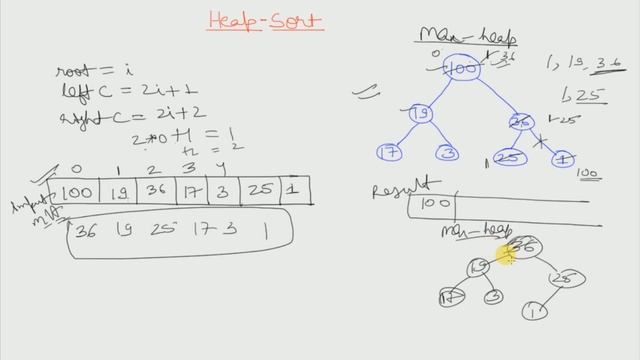 Heap-Sort
root = i
left C = 2i+1
right C = 2i+2
2*0+1 = 1
+2 = 2
0 1 2 3 4
Input
100 19 36 17 3 25 1
36 19 25 17 3 1
Max-heap
0
100 1 36
19 36 1 25
17 3 25 1
100
1, 19, 36
1, 25
Result
100
Max-heap
36
19 25
17 3 1